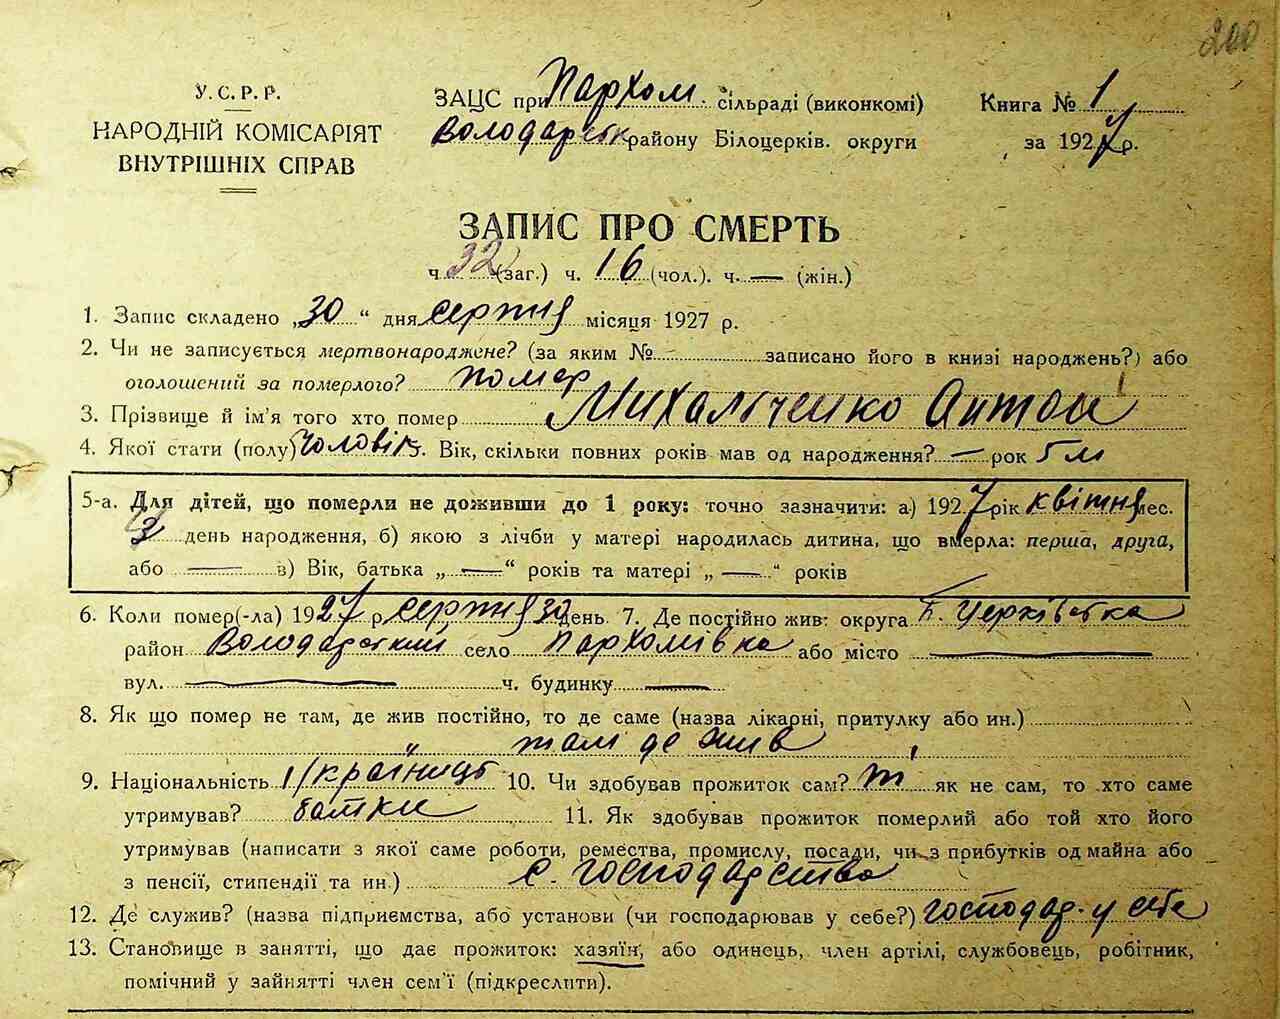 200
У.С.Р.Р.
НАРОДНІЙ КОМІСАРІЯТ
ВНУТРІШНІХ СПРАВ
ЗАЦС при Пархом. сільраді (виконкомі)
Володарськ району Білоцерків. округи
Книга № 1
за 1927 р.
ЗАПИС ПРО СМЕРТЬ
ч. 32 (заг.) ч. 16 (чол.). ч. — (жін.)
1. Запис складено „30“ дня серпня місяця 1927 р.
2. Чи не записується мертвонароджене? (за яким № записано його в книзі народжень?) або
оголошений за померлого? помер
3. Прізвище й ім'я того хто помер Михальченко Антон
4. Якої стати (полу) чоловіч. Вік, скільки повних років мав од народження? — рок 5 м
5-а. Для дітей, що померли не доживши до 1 року: точно зазначити: а) 1927 рік квітня мес.
3 день народження, б) якою з лічби у матері народилась дитина, що вмерла: перша, друга,
або — в) Вік, батька „—“ років та матері „—“ років
6. Коли помер(-ла) 1927 р серпня 30 день 7. Де постійно жив: округа Б. Церківська
район Володарський село Пархомівка або місто —
вул. — ч. будинку —
8. Як що помер не там, де жив постійно, то де саме (назва лікарні, притулку або ин.)
там де жив
9. Національність Українець 10. Чи здобував прожиток сам? ні як не сам, то хто саме
утримував? батьки 11. Як здобував прожиток померлий або той хто його
утримував (написати з якої саме роботи, ремества, промислу, посади, чи з прибутків од майна або
з пенсії, стипендії та ин.) с. господарство
12. Де служив? (назва підприємства, або установи (чи господарював у себе?) господар. у себе
13. Становище в занятті, що дає прожиток: хазяїн, або одинець, член артілі, службовець, робітник,
помічний у зайнятті член сем'ї (підкреслити).